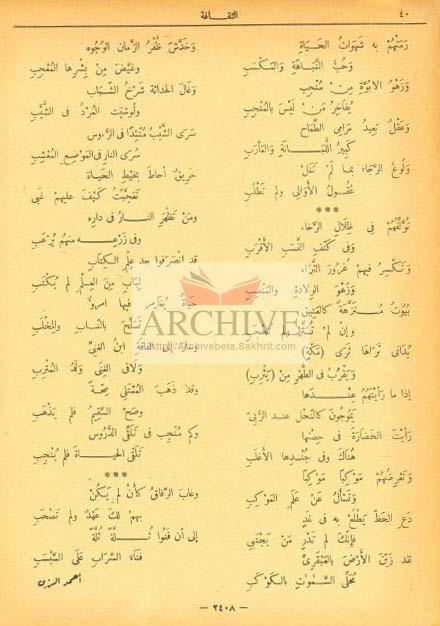 ٤٠
الثقافة
رمتهم به شهوات الحياة
وحب النباهة والمكسب
وزهو الأبوة من منجب
يفاخر من ليس بالمنجب
وعقل بعيد مرامي الطماح
كبير اللبانة والمأرب
ولوع الرجاء بما لم تنل
عقول الأوالى ولم تطلب
***
تؤلفهم في ظلال الرخاء
وفى كنف النسب الأقرب
وتكسر فيهم غرور الثراء
وزهو الولادة والمنصب
بيوت منزهة كالعتيق
وإن لم
يدانى ثراها ثرى (مكة)
ويقرب في الطهر من (يثرب)
إذا ما رأيتهم عندها
يموجون كالنحل عند الربى
رأيت الحضارة في حصنها
هناك وفى جندها الأغلب
وتعرضهم موكباً موكباً
وتسأل عن علم الموكب
دع الحظ يطلع به في غد
فإنك لم تدر من يجتبى
لقد زين الأرض بالعبقرى
محلى السموات بالكوكب
وخدش ظفر الزمان الوجوه
وغيض من بشرها المعجب
وغال الحداثة شرخ الشباب
ولوشيت المرد في الشيب
سرى الشيب متئداً في الرءوس
سرى النار في الموضع المعشب
حريق أحاط بخيط الحياة
تعجبت كيف عليهم غبى
ومن تظهر النار في داره
وفى زرعه منهم يرعب
قد انصرفوا بعد علم الكتاب
لباب من العلم لم يكتب
حياة يغامر فيها امرؤ
تسلح بالناب والمخلب
وصار إلى الفاقة ابن الغنى
ولاقى الغنى ولد المترب
وقد ذهب الممتلى صحة
وصح السقيم فلم يذهب
وكم منجب في تلقى الدروس
تلقى الحياة فلم ينجب
***
وغاب الرفاق كأن لم يكن
بهم لك عهد ولم تصحب
إلى أن فنوا ثلة ثلة
فناء السراب على السبسب
أحمد الزين
ARCHIVE
http://Archivebeta.Sakhrit.com
— ٢٤٠٨ —